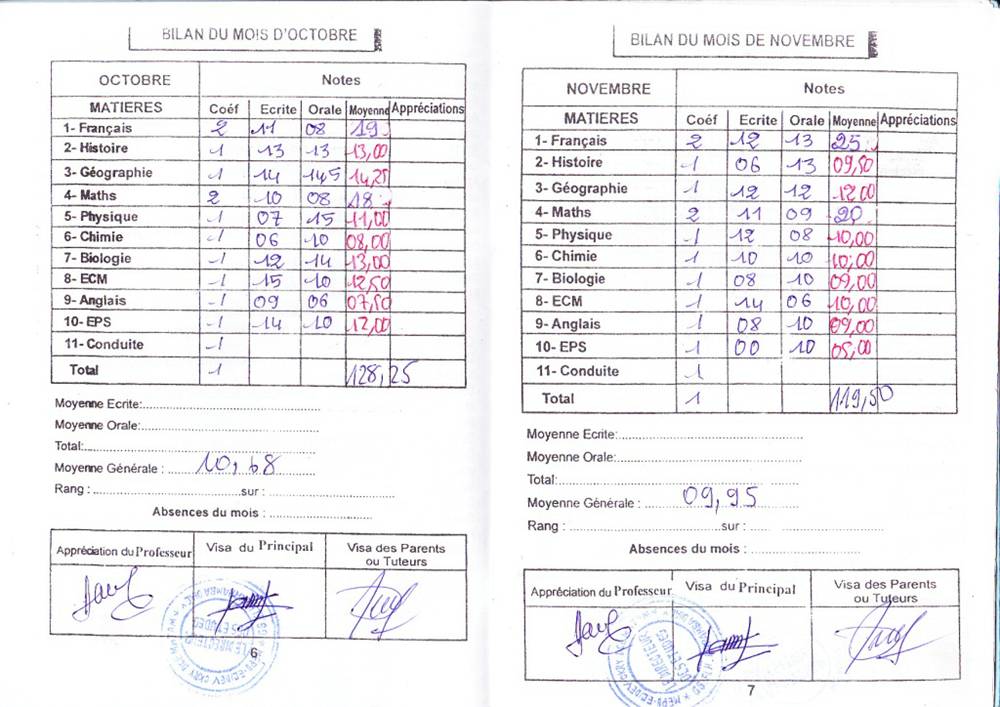 BILAN DU MOIS D'OCTOBRE
OCTOBRE Notes
MATIERES Coéf Ecrite Orale Moyenne Appréciations
1- Français 2 11 08 19
2- Histoire 1 13 13 13,00
3- Géographie 1 14 14,5 14,25
4- Maths 2 10 08 18
5- Physique 1 07 15 11,00
6- Chimie 1 06 10 08,00
7- Biologie 1 12 14 13,00
8- ECM 1 15 10 12,50
9- Anglais 1 09 06 07,50
10- EPS 1 14 10 12,00
11- Conduite 1
Total 1 128,25
Moyenne Ecrite:
Moyenne Orale:
Total:
Moyenne Générale : 10,68
Rang : sur :
Absences du mois :
Appréciation du Professeur Visa du Principal Visa des Parents ou Tuteurs
6
BILAN DU MOIS DE NOVEMBRE
NOVEMBRE Notes
MATIERES Coéf Ecrite Orale Moyenne Appréciations
1- Français 2 12 13 25
2- Histoire 1 06 13 09,50
3- Géographie 1 12 12 12,00
4- Maths 2 11 09 20
5- Physique 1 12 08 10,00
6- Chimie 1 10 10 10,00
7- Biologie 1 08 10 09,00
8- ECM 1 14 06 10,00
9- Anglais 1 08 10 09,00
10- EPS 1 00 10 05,00
11- Conduite 1
Total 1 119,50
Moyenne Ecrite:
Moyenne Orale:
Total:
Moyenne Générale : 09,95
Rang : sur :
Absences du mois :
Appréciation du Professeur Visa du Principal Visa des Parents ou Tuteurs
LE DIRECTEUR
DES ETUDES
7